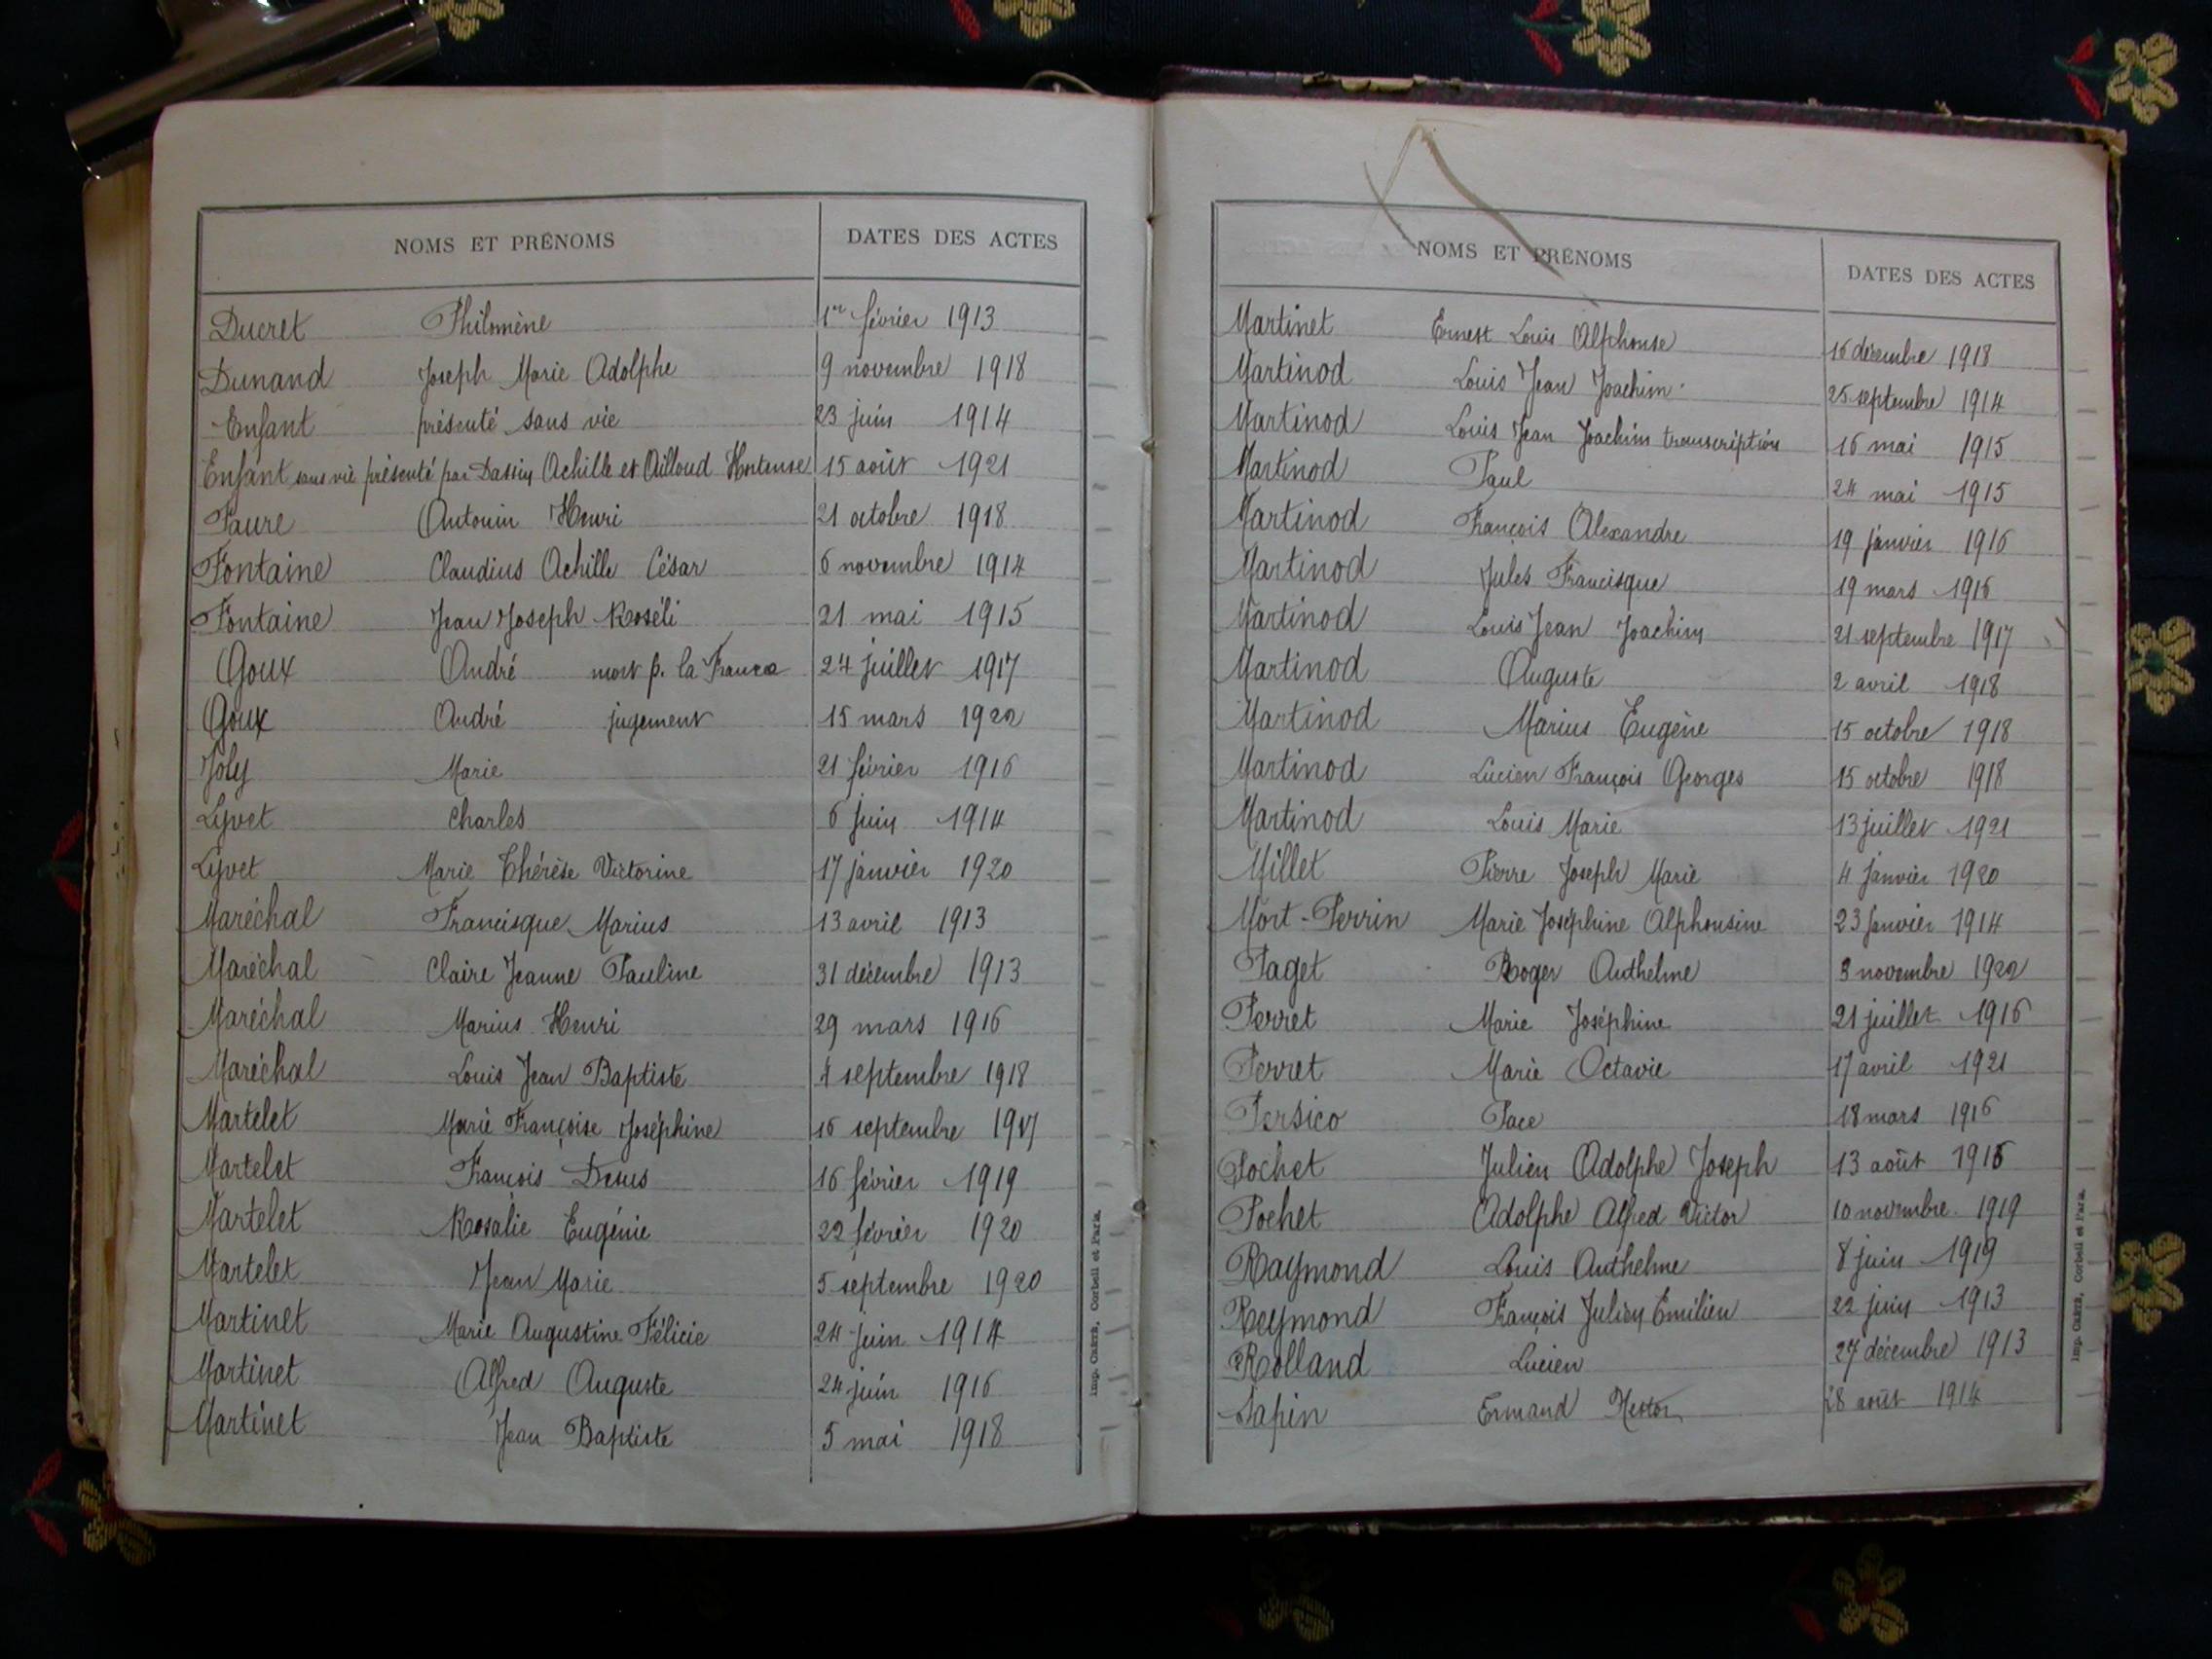 NOMS ET PRÉNOMS DATES DES ACTES
Ducret Philomène 1er février 1913
Dunand Joseph Marie Adolphe 9 novembre 1918
Enfant présenté sans vie 23 juin 1914
Enfant sans vie présenté par Dassin Achille et Ailloud Hortense 15 août 1921
Faure Antonin Henri 21 octobre 1918
Fontaine Claudius Achille César 6 novembre 1914
Fontaine Jean Joseph Roséli 21 mai 1915
Goux André mort p. la France 24 juillet 1917
Goux André jugement 15 mars 1922
Joly Marie 21 février 1916
Lyvet Charles 6 juin 1914
Lyvet Marie Thérèse Victorine 17 janvier 1920
Maréchal Francisque Marius 13 avril 1913
Maréchal Claire Jeanne Pauline 31 décembre 1913
Maréchal Marius Henri 29 mars 1916
Maréchal Louis Jean Baptiste 4 septembre 1918
Martelet Marie Françoise Joséphine 16 septembre 1917
Martelet François 16 février 1919
Martelet Rosalie Eugénie 22 février 1920
Martelet Jean Marie 5 septembre 1920
Martinet Marie Augustine Félicie 24 juin 1914
Martinet Alfred Auguste 24 juin 1916
Martinet Jean Baptiste 5 mai 1918
Imp. Crété, Corbeil et Paris.
NOMS ET PRÉNOMS DATES DES ACTES
Martinet Ernest Louis Alphonse 16 décembre 1918
Martinod Louis Jean Joachim 25 septembre 1914
Martinod Louis Jean Joachim transcription 16 mai 1915
Martinod Paul 24 mai 1915
Martinod François Alexandre 19 janvier 1916
Martinod Jules Francisque 19 mars 1916
Martinod Louis Jean Joachim 21 septembre 1917
Martinod Auguste 2 avril 1918
Martinod Marius Eugène 15 octobre 1918
Martinod Lucien François Georges 15 octobre 1918
Martinod Louis Marie 13 juillet 1921
Millet Pierre Joseph Marie 4 janvier 1920
Mort-Perrin Marie Joséphine Alphonsine 23 janvier 1914
Paget Roger Anthelme 3 novembre 1922
Perret Marie Joséphine 21 juillet 1916
Perret Marie Octavie 17 avril 1921
Persico Pace 18 mars 1916
Pochet Julien Adolphe Joseph 13 août
Pochet Adolphe Alfred Victor 10 novembre 1919
Raymond Louis Anthelme 8 juin 1919
Reymond François Julien Emilien 22 juin 1913
Rolland Lucien 27 décembre 1913
Sapin Ermand Hector 28 août 1914
Imp. Crété, Corbeil et Paris.